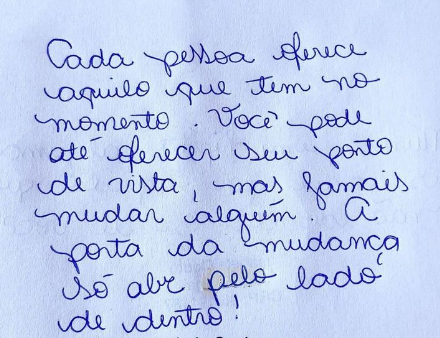 Cada pessoa oferece
aquilo que tem no
momento. Você pode
até oferecer seu ponto
de vista, mas jamais
mudar alguém. A
porta da mudança
só abre pelo lado
de dentro!